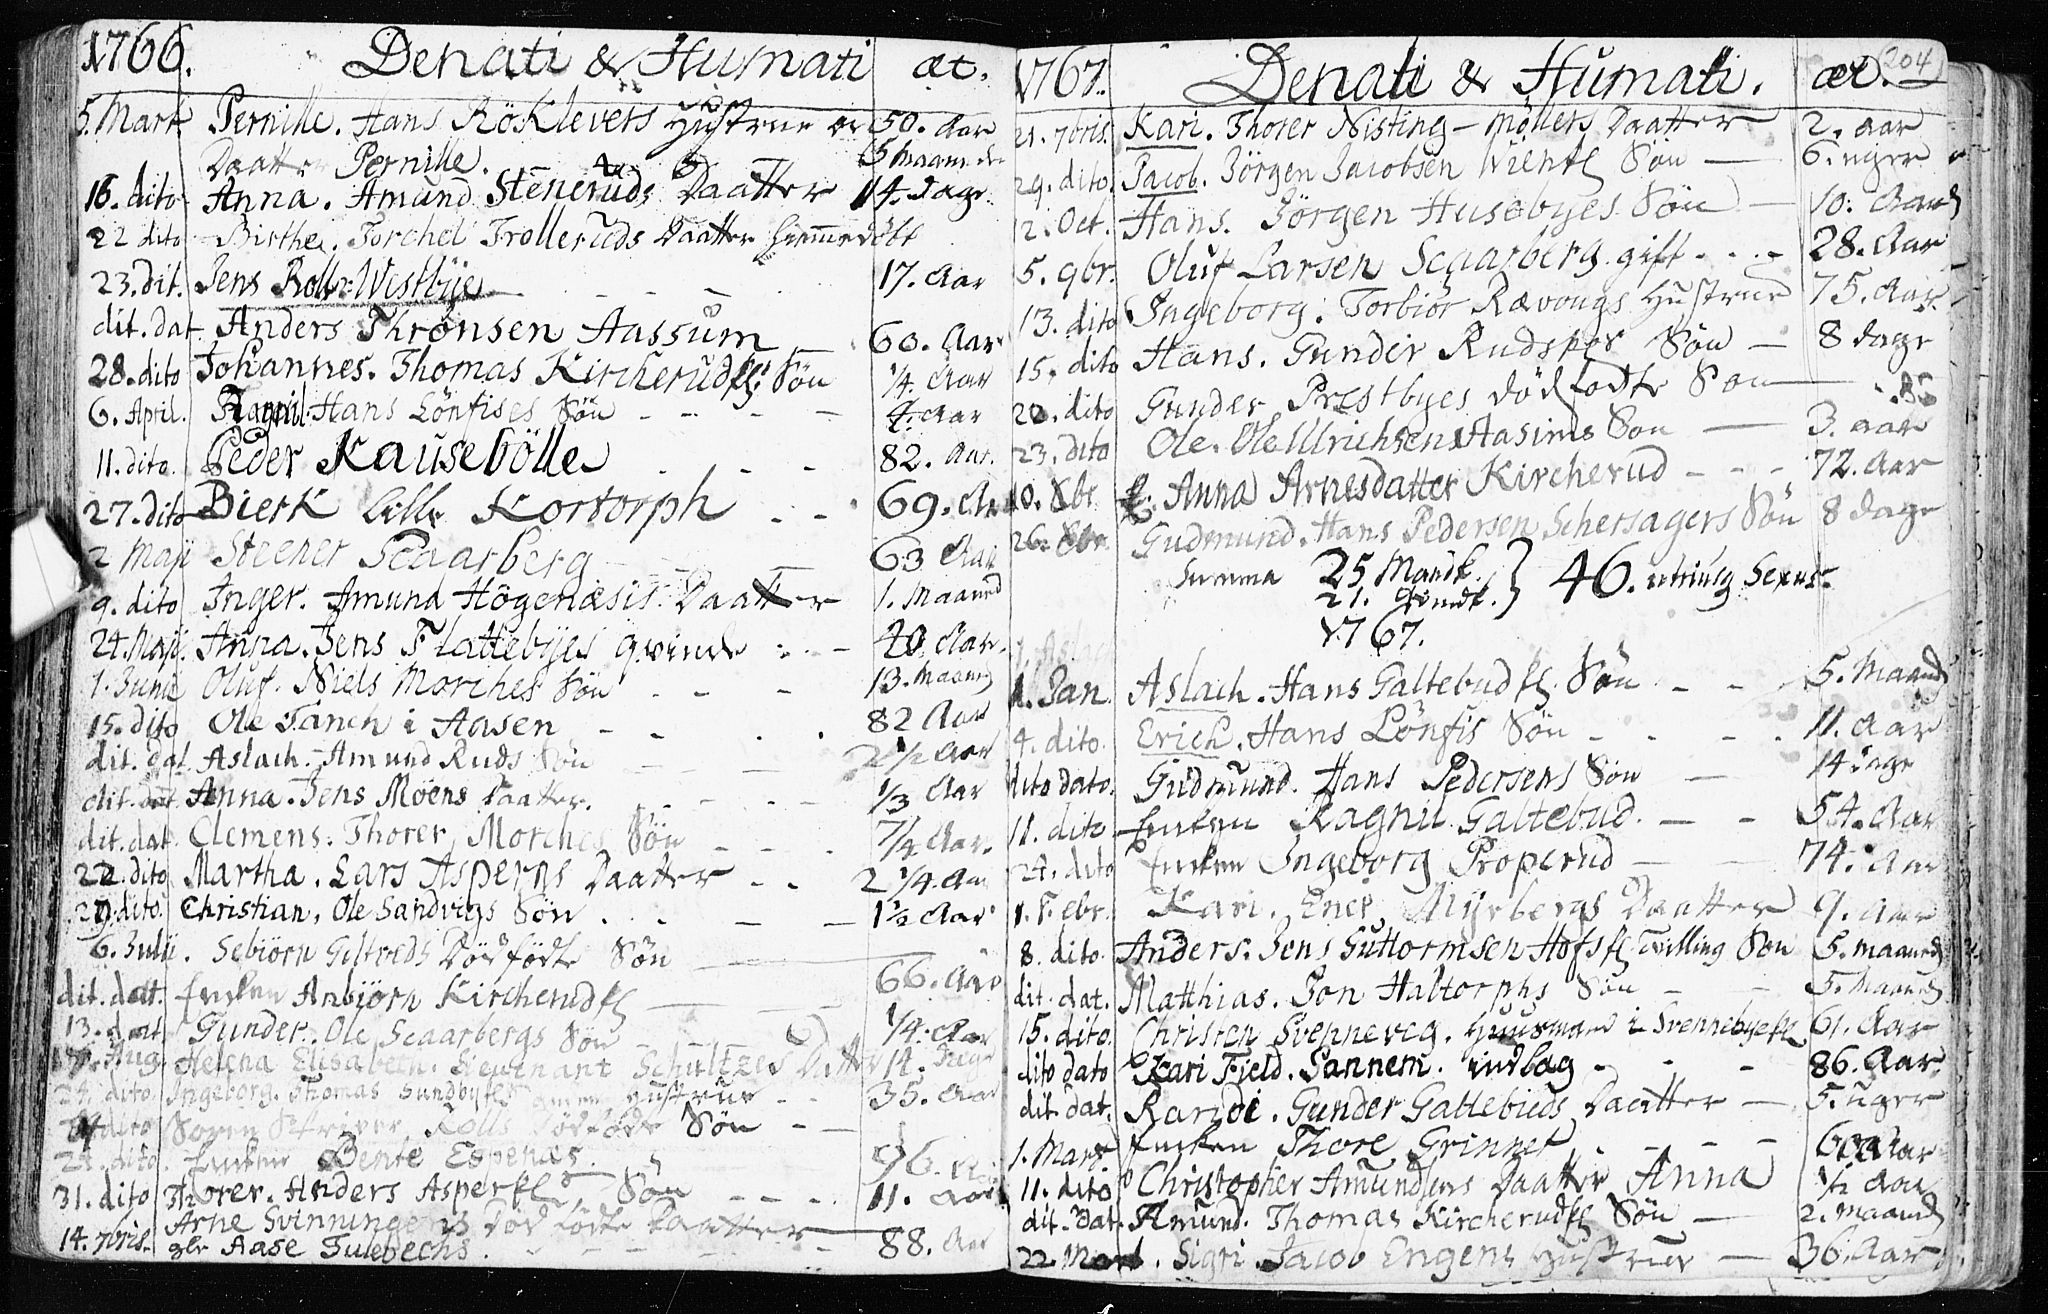 1766. Denati & Humati æt.
5. Mart Pernille. Hans Röklevers Hustrue og 50. Aar
Daatter Pernille. 5 Maaneder
16. dito Anna. Amund Steneruds Daatter 14. dage
22 dito Birthe. Torchel Trolleruds Daatter hiemmedöbt
23. dit. Jens Roll Westbÿe 17. Aar
dit. dat. Anders Thrönsen Aassum 60. Aar
28. dito Johannes. Thomas Kircherudsß Sön 1/4. Aar
6. April. Hans Lönfises Sön 4. Aar
11. dito. Peder Kausebölle 82. Aar.
27. dito Bierk Lille Kortorph 69. Aar
2 Maji Steener Scaarberg 63 Aar
9. dito Inger. Amund Högenæsis Daatter 1. Maaned
24. Maji. Anna. Jens Flattebÿes qvinde 40. Aar.
1. Junii Oluf. Niels Morches Sön 13. Maaned
15. dito Ole Tanch i Aasen 82 Aar
dit. dat. Aslach. Amund Ruds Sön 2 1/2 Aar
dit. dat. Anna. Jens Möens Daatter. 1/3 Aar
dit. dat. Clemens. Thorer Morches Sön 7/4 Aar.
22. dito Martha. Lars Asperns Daatter 2 1/4. Aar
29. dito. Christian. Ole Sandvigs Sön 1 1/2 Aar
6. Julii. Sebiörn Giltveds Dödfödte Sön
dit. dat. Enken Anbiörn Kircherudsß 66. Aar
13. dat Gunder. Ole Scaarbergs Sön 1/4. Aar
17. Aug. Helena Elisabeth. Lieutenant Schultzes Datter 14. Dage
24. dito. Ingeborg. Thomas Sundbyeß Hustrue 35. Aar
dito Soren Skriver Rolls dödfödte Sön
24. dito. Enken Bente Espenæs 96. Aar
31. dito Thorer. Anders Asperß Sön 11. Aar
Arne Svinningens Död födte Daatter
14. 7bris. Aase Tulebechs 88. Aar
204
1767. Denati & Humati. æt.
21. 7bris. Kari. Thorer Nisting-Möllers Daatter 2. aar
29. dito. Jacob. Jörgen Jacobsen Wiens Sön 6. uger
2. Oct. Hans. Jörgen Husebyes Sön 10. Aar
5. 9br. Oluf Larsen Scaarberg gift 28. Aar
13. dito Ingeborg. Torbiör Rævougs Hustrue 75. Aar.
15. dito Hans. Gunder Rudsþes Sön 8 dage
22. dito Gunder Prestbyes dödfödte Sön
23. dito Ole. Ole Ulrichsen Aasims Son 3. aar
10. Xbr. Anna Arnesdatter Kircherud 72. Aar
26. Xbr. Gudmund. Hans Pedersen Schersagers Sön 8 dage
Summa 25 Mandk. } 46. utriusq Sexus.
21. Qvindk.
1767.
1. Jan Aslach. Hans Galtebudß Sön 5. Maaned
4. dito. Erich. Hans Lönfis Sön 11. Aar
dito dato. Gudmund. Hans Pedersens Sön 14 dage
11. dito Enken Ragnil Galtebud. 54. Aar
24. dito Enken Ingeborg Properud 74. Aar
1. Febr. Kari. Ener Myrbergs Daatter 9. Aar
8. dito. Anders. Jens Guttormsen Hofsß Tvilling Sön 5. maaned
dit. dat. Matthias. Jon Haltorphs Sön 5. Maaned
15. dito. Christen Svenneveg. Huusmand i Svennebyeß 61. Aar
dito dato Kari Field. Sannem. indlag 86. Aar.
dit. dat. Randi. Gunder Galtebuds Daatter 5. uger
1. Mart Enken Thore Grinner 60 Aar
11. dito Christopher Amundsens Daatter Anna 1/2 Aar
dit. dat. Amund. Thomas Kircherudß Sön 2. maaned
22. Mart. Sigri. Jacob Engens Hustrue 36. Aar